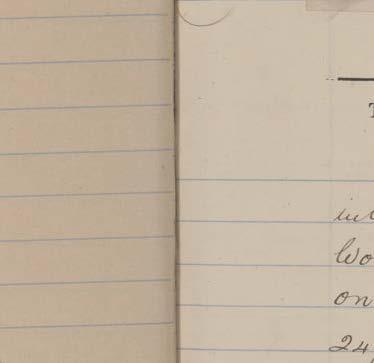 T
int
Wo
on
24